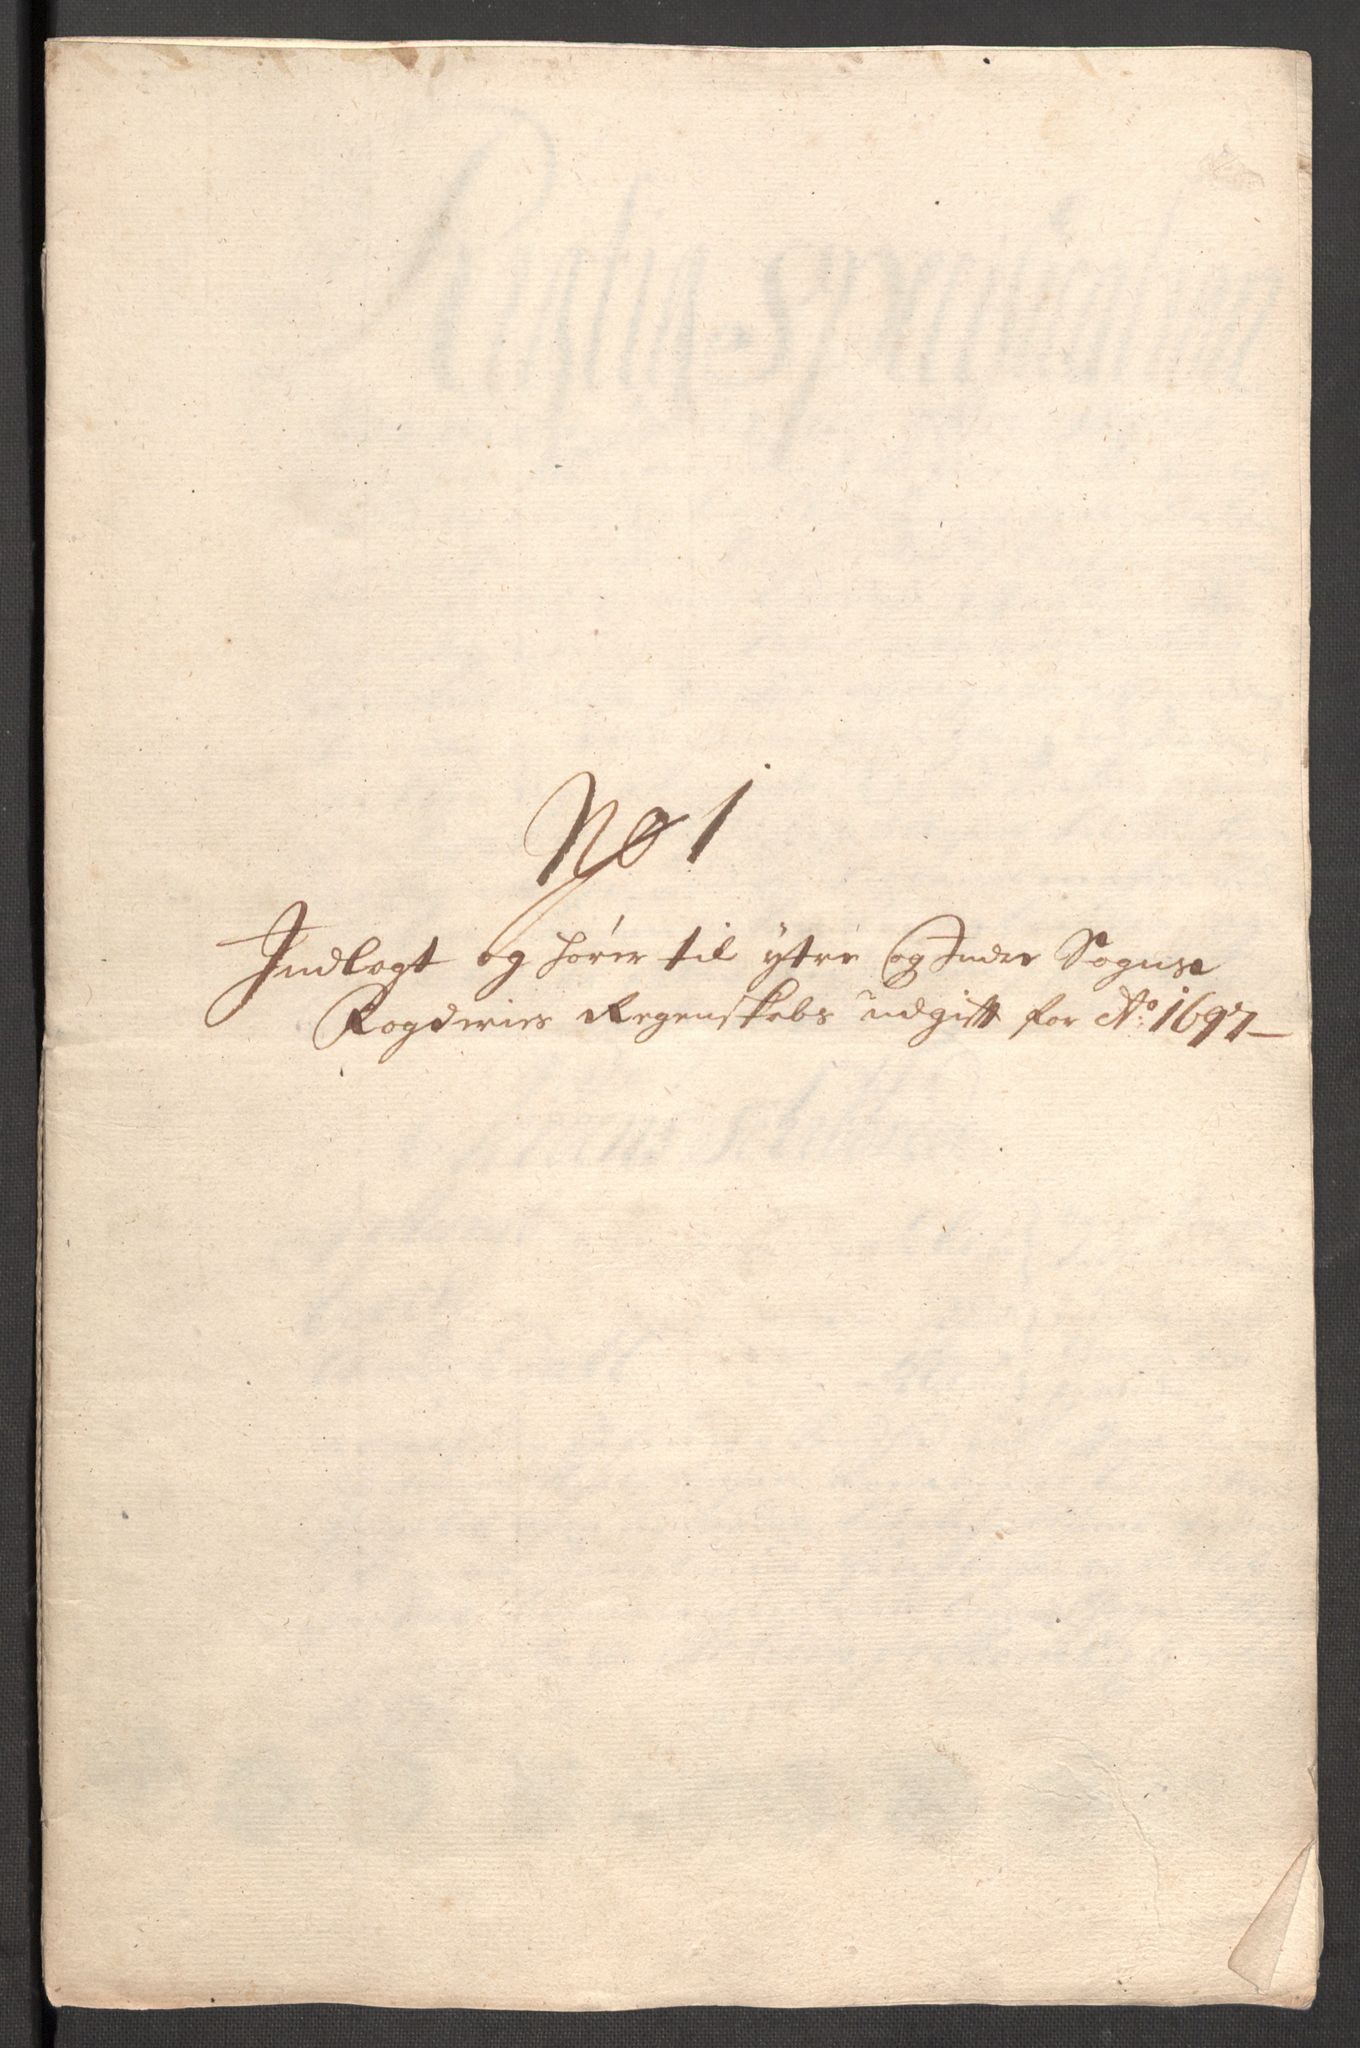 No 1
Indlagt og hörer til ytre og Indre Sogns
Fogderies Regenskabs udgifft for Ao: 1697